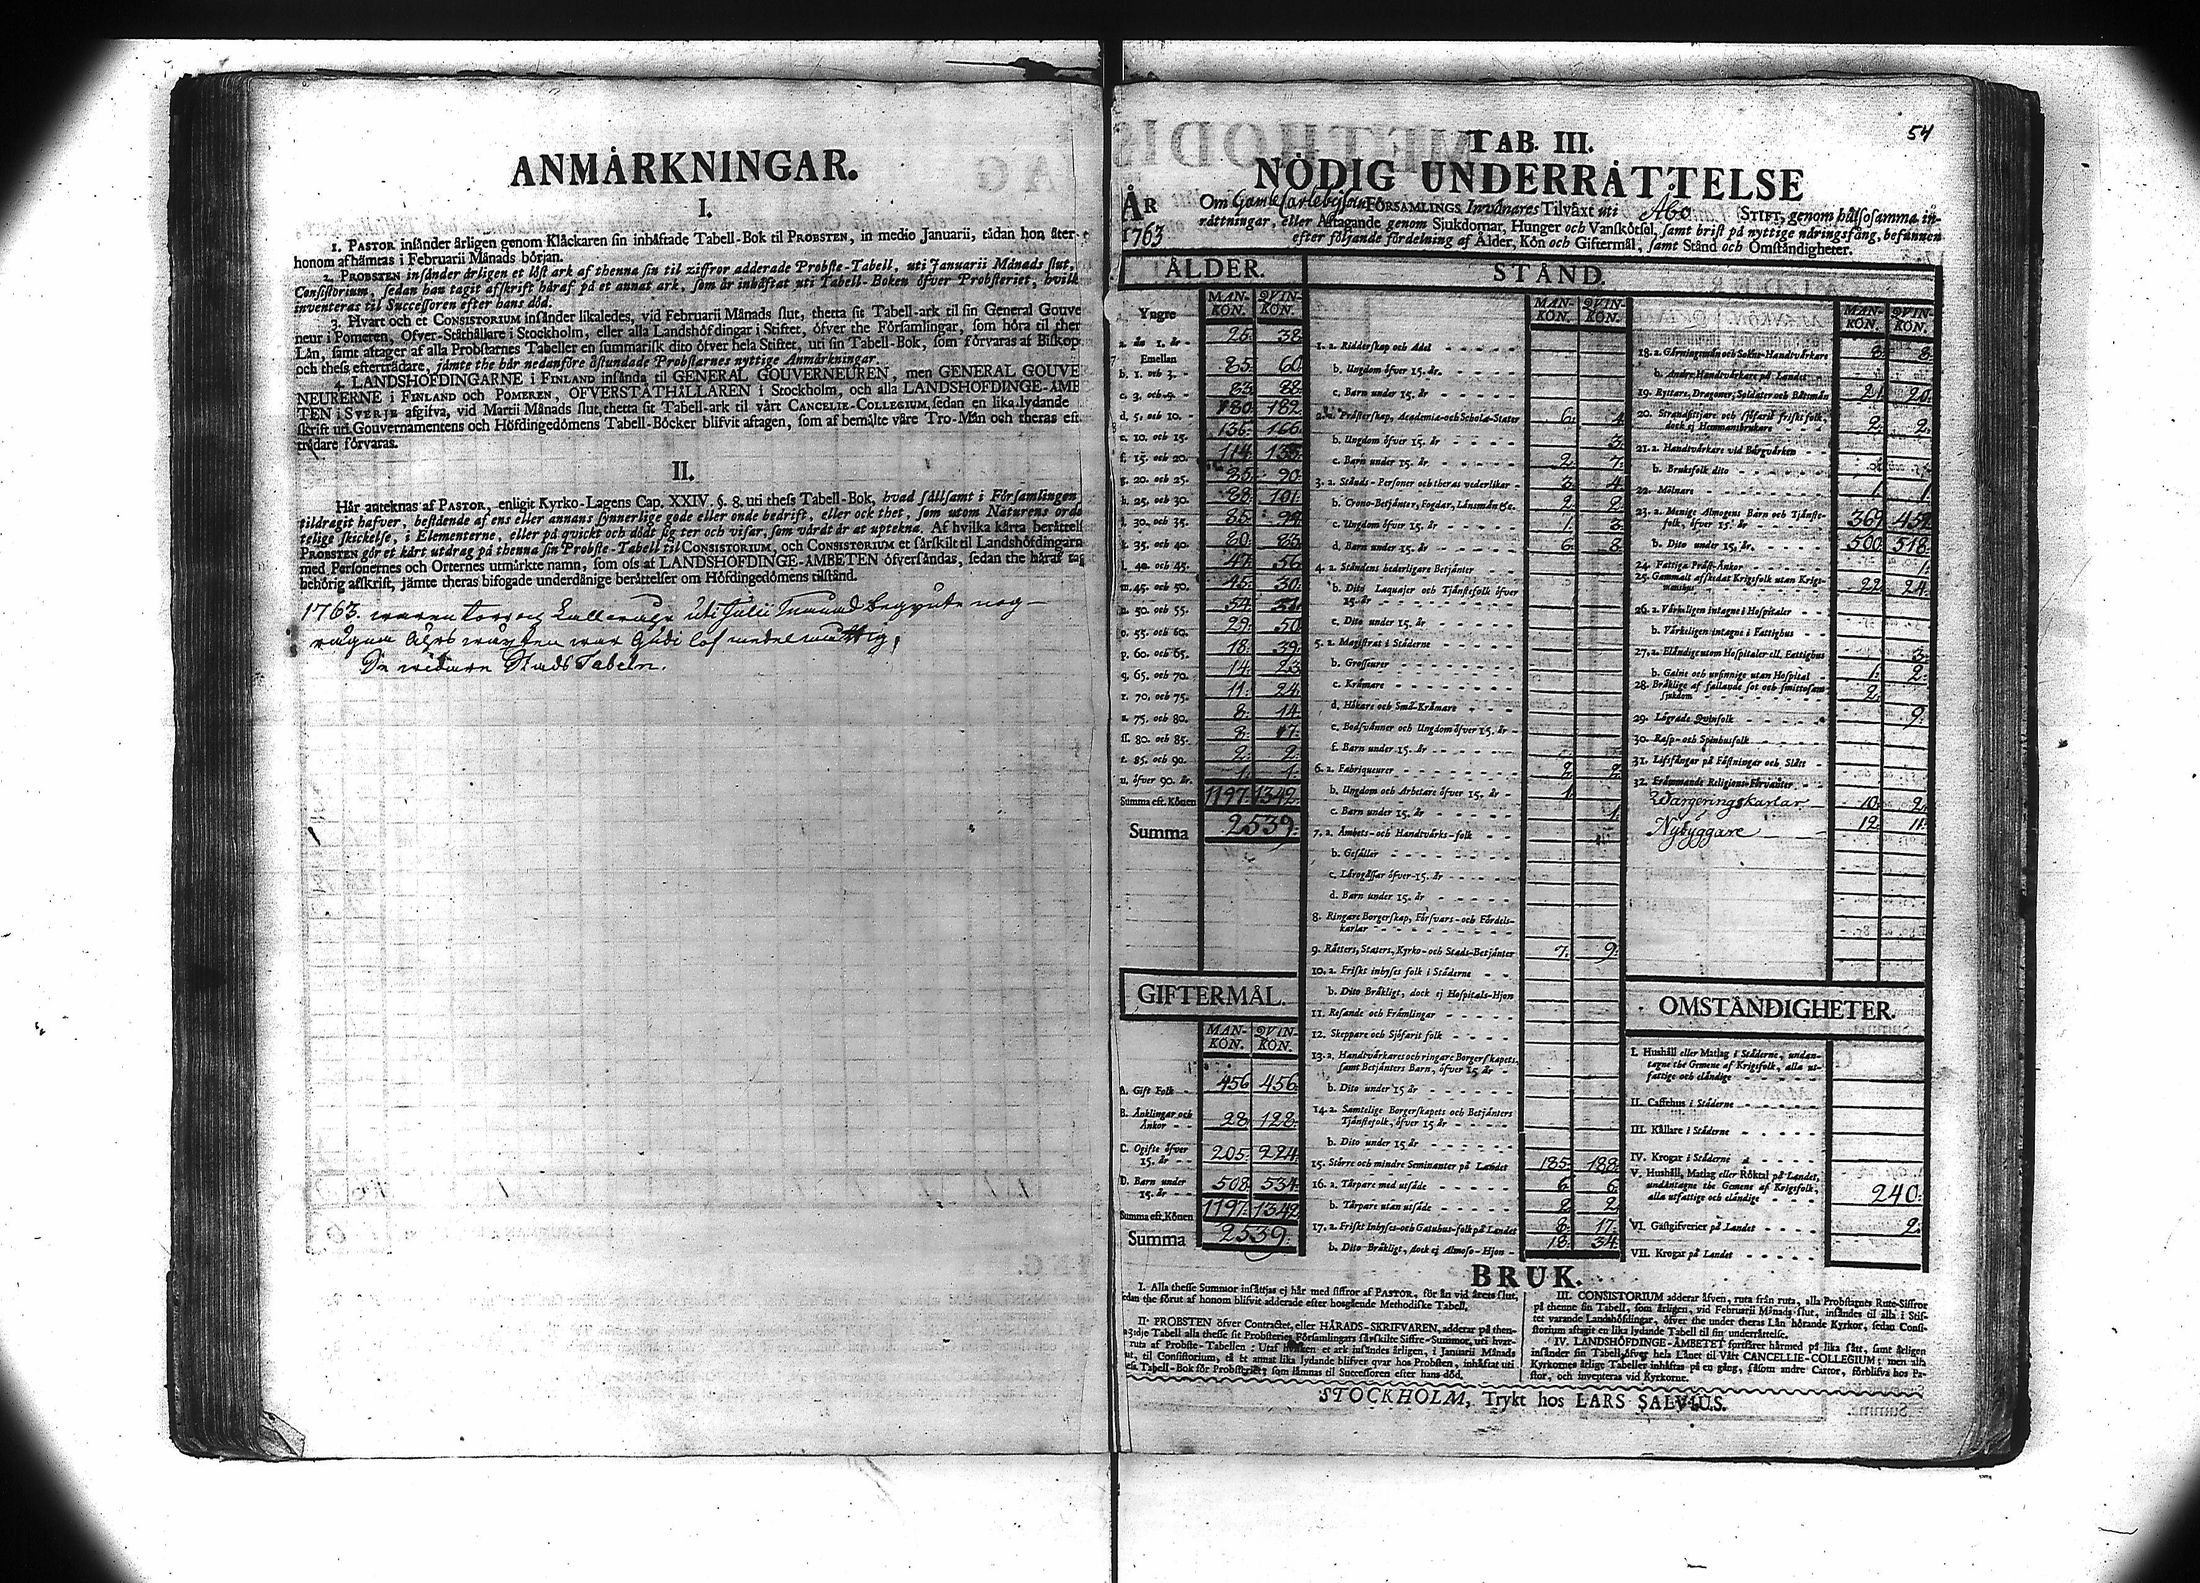 ANMÅRKNINGAR.
I.
1. PASTOR insänder årligen genom Klåckaren sin inhäftade Tabell-Bok til PROBSTEN, in medio Januarii, tådan hon åter-
honom afhämtas i Februarii Månads början.
2. PROBSTEN insänder årligen et löst ark af thenna sin til ziffror adderade Probste-Tabell, uti Januarii Månads slut,
Consistorium, sedan han tagit afskrift häraf på et annat ark, som är inhäftat uti Tabell-Boken öfver Probsteriet, hvilk
inventeras til Successoren efter hans död.
3. Hvart och et CONSISTORIUM insänder likaledes, vid Februarii Månads slut, thetta sit Tabell-ark til sin General Gouve
neur i Pomeren, Ofver-Ståthållare i Stockholm, eller alla Landshöfdingar i Stiftet, öfver the Församlingar, som höra til ther
Län, samt aftager af alla Probstarnes Tabeller en summarisk dito öfver hela Stiftet, uti sin Tabell-Bok, som förvaras af Biskop
och thess efterträdare, jämte the här nedanföre åstundade Probstarnes nyttige Anmärkningar.
4. LANDSHÖFDINGARNE i FINLAND insända til GENERAL GOUVERNEUREN, men GENERAL GOUVE
NEURERNE i FINLAND och POMEREN, ÖFVERSTÅTHÅLLAREN i Stockholm, och alla LANDSHÖFDINGE-ÄMB
TEN i SVERJE afgifva, vid Martii Månads slut, thetta sit Tabell-ark til vårt CANCELIE-COLLEGIUM, sedan en lika lydande
skrift uti Gouvernamentens och Höfdingedömens Tabell-Böcker blifvit aftagen, som af bemälte våre Tro-Män och theras eft
trädare förvaras.
II.
Här anteknas af PASTOR, enligit Kyrko-Lagens Cap. XXIV §. 8. uti thess Tabell-Bok, hvad sällsamt i Församlingen
tildragit hafver, bestående af ens eller annans synnerlige gode eller onde bedrift, eller ock thet, som utom Naturens ordo
telige skickelse, i Elementerne, eller på qvickt och dödt sig ter och visar, som värdt är at uptekna. Af hvilka kårta berättels
PROBSTEN gör et kårt utdrag på thenna sin Probste-Tabell til CONSISTORIUM, och CONSISTORIUM et särskilt til Landshöfdingarn
med Personernes och Orternes utmärkte namn, som oss af LANDSHÖFDINGE-ÄMBETEN öfversändas, sedan the häraf tag
behörig afskrift, jämte theras bifogade underdånige berättelser om Höfdingedömens tilstånd.
1763. waren uti Julii Månad begynte nog
wäxten war Gudi lof medelmåttig,
Se widare Stads Tabeln.
54
TAB. III.
NÖDIG UNDERRÅTTELSE
ÅR 1763
Om Gamle Carleby FÖRSAMLINGS Invånares Tilväxt uti Åbo STIFT, genom hälsosamma in-
rättningar, eller Aftagande genom Sjukdomar, Hunger och Vanskötsel, samt brist på nyttige näringsfång, befunnen
efter följande fördelning af Ålder, Kön och Giftermål, samt Stånd och Omständigheter.
ÅLDER.
MAN-KÖN. QVIN-KÖN.
Yngre
a. än 1. år - 25. 38.
Emellan
b. 1. och 3. - 85. 60.
c. 3. och 5. - 83. 88.
d. 5. och 10. - 180. 182.
e. 10. och 15. 135. 166.
f. 15. och 20. 114. 135.
g. 20. och 25. 85. 90.
h. 25. och 30. 88. 101.
i. 30. och 35. 85. 99.
k. 35. och 40. 80. 83.
l. 40. och 45. 47. 56.
m. 45. och 50. 45. 30.
n. 50. och 55. 54. 51.
o. 55. och 60. 29. 50.
p. 60. och 65. 18. 39.
q. 65. och 70. 14. 23.
r. 70. och 75. 11. 24.
s. 75. och 80. 8. 14.
ss. 80. och 85. 8. 17.
t. 85. och 90. 2. 2.
u. öfver 90. år. 1. 1.
Summa eft. Könen 1197. 1342.
Summa 2539.
GIFTERMÅL.
MAN-KÖN. QVIN-KÖN.
A. Gift Folk - 456 456.
B. Änklingar och Änkor - - 28. 128.
C. Ogifte öfver 15. år - - 205. 224.
D. Barn under 15. år - - 508. 534.
Summa eft. Könen 1197. 1342
Summa 2539.
STÅND.
MAN-KÖN. QVIN-KÖN.
1. a. Ridderskap och Adel
b. Ungdom öfver 15. år.
c. Barn under 15. år
2. a. Prästerskap, Academia- och Schola-Stater 6. 4.
b. Ungdom öfver 15. år 3.
c. Barn under 15. år 2. 7.
3. a. Stånds-Personer och theras vederlikar 3. 4.
b. Crono-Betjänter, Fogdar, Länsmän &c. 2. 2.
c. Ungdom öfver 15. år 1. 3.
d. Barn under 15. år 6. 8.
4. a. Ståndens hederligare Betjänter
b. Dito Laquajer och Tjänstefolk öfver 15. år
c. Dito under 15. år
5. a. Magistrat i Städerne
b. Grosseurer
c. Krämare
d. Hökare och Små-Krämare
e. Bodsvänner och Ungdom öfver 15. år
f. Barn under 15. år
6. a. Fabriqueurer 2. 2.
b. Ungdom och Arbetare öfver 15. år 1.
c. Barn under 15. år 1.
7. a. Ämbets- och Handtvärks-folk
b. Gesäller
c. Lärogåssar öfver 15. år
d. Barn under 15. år
8. Ringare Borgerskap, Försvars- och Fördels-karlar
9. Rätters, Staters, Kyrko- och Stads-Betjänter 7. 9.
10. a. Friskt inhyses folk i Städerne
b. Dito Bräkligt, dock ej Hospitals-Hjon
11. Resande och Främlingar
12. Skeppare och Sjöfarit folk
13. a. Handtvärkares och ringare Borgerskapets, samt Betjänters Barn, öfver 15 år
b. Dito under 15 år
14. a. Samtelige Borgerskapets och Betjänters Tjänstefolk, öfver 15 år
b. Dito under 15 år
15. Större och mindre Seminanter på Landet 185. 188.
16. a. Tårpare med utsäde 6. 6.
b. Tårpare utan utsäde 2. 2.
17. a. Friskt Inhyses- och Gatuhus-folk på Landet 8. 17.
b. Dito Bräkligt, dock ej Almoso-Hjon 18. 34.
MAN-KÖN. QVIN-KÖN.
18. a. Gärningsmän och Sokne-Handtvärkare 8. 8.
b. Andre Handtvärkare på Landet
19. Ryttare, Dragoner, Soldater och Båtsmän 21. 20.
20. Strandsittjare och sjöfarit friskt folk, dock ej Hemmansbrukare 2. 2.
21. a. Handtvärkare vid Bärgvärken
b. Bruksfolk dito
22. Mölnare 1. 1.
23. a. Menige Almogens Barn och Tjänste-folk, öfver 15. år 369. 452.
b. Dito under 15. år. 500. 518.
24. Fattiga Präst-Änkor 1.
25. Gammalt afskedat Krigsfolk utan Krigs-manshus 22. 24.
26. a. Värkeligen intagne i Hospitaler
b. Värkeligen intagne i Fattighus
27. a. Eländige utom Hospitaler ell. Fattighus 3.
b. Galne och ursinnige utan Hospital 1. 2.
28. Bräklige af fallande sot och smittosam sjukdom 2.
29. Lägrade Qvinfolk 9.
30. Rasp- och Spinhusfolk
31. Lifsfångar på Fästningar och Slått
32. Främmande Religions-Förvanter
Wargeringskarlar 10. 2.
Nybyggare 12. 11.
OMSTÄNDIGHETER.
I. Hushåll eller Matlag i Städerne, undan-
tagne the Gemene af Krigsfolk, alla ut-
fattige och eländige
II. Caffehus i Städerne
III. Källare i Städerne
IV. Krogar i Städerne
V. Hushåll, Matlag eller Röktal på Landet,
undantagne the Gemene af Krigsfolk,
alla utfattige och eländige 240.
VI. Gästgifverier på Landet 2.
VII. Krogar på Landet
BRUK.
I. Alla thesse Summor insättjas ej här med siffror af PASTOR, för än vid årets slut,
sedan the förut af honom blifvit adderade efter hosgående Methodiske Tabell.
II. PROBSTEN öfver Contractet, eller HÄRADS-SKRIFVAREN, adderar på then-
na 3:dje Tabell alla thesse sit Probsteries Församlingars särskilte Siffre-Summor, uti hvar-
ruta af Probste-Tabellen: Utaf hvilken et ark insändes årligen, i Januarii Månads
ut, til Consistorium, så et annat lika lydande blifver qvar hos Probsten, inhäftat uti
es Tabell-Bok för Probsteriet; som lämnas til Successoren efter hans död.
III. CONSISTORIUM adderar äfven, ruta från ruta, alla Probstarnes Rute-Siffror
på thenne sin Tabell, som årligen, vid Februarii Månads slut, insändes til alla i Stif-
tet varande Landshöfdingar, öfver the under theras Län hörande Kyrkor, sedan Consi-
storium aftagit en lika lydande Tabell til sin underrättelse.
IV. LANDSHÖFDINGE-ÄMBETET fortfarer härmed på lika sätt, samt årligen
insänder sin Tabell öfver hela Länet til Vårt CANCELLIE-COLLEGIUM; men alla
Kyrkornes årlige Tabeller inhäftas på en gång, såsom andre Cartor, förblifva hos Pa-
stor, och inventeras vid Kyrkorne.
STOCKHOLM, Trykt hos LARS SALVIUS.